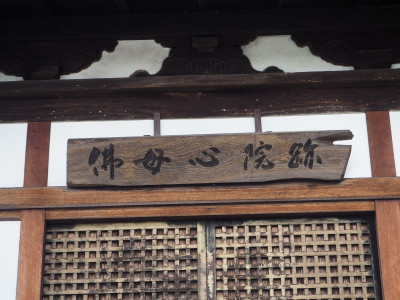 佛母心院跡